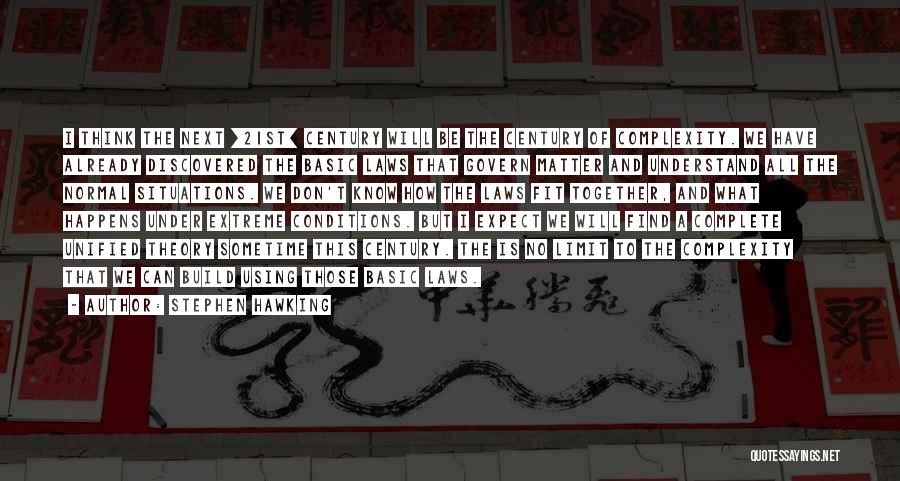 I THINK THE NEXT [21ST] CENTURY WILL BE THE CENTURY OF COMPLEXITY. WE HAVE
ALREADY DISCOVERED THE BASIC LAWS THAT GOVERN MATTER AND UNDERSTAND ALL THE
NORMAL SITUATIONS. WE DON'T KNOW HOW THE LAWS FIT TOGETHER, AND WHAT
HAPPENS UNDER EXTREME CONDITIONS. BUT I EXPECT WE WILL FIND A COMPLETE
UNIFIED THEORY SOMETIME THIS CENTURY. THE IS NO LIMIT TO THE COMPLEXITY
THAT WE CAN BUILD USING THOSE BASIC LAWS.
~ AUTHOR: STEPHEN HAWKING
中华腾飞
QUOTESSAYINGS.NET